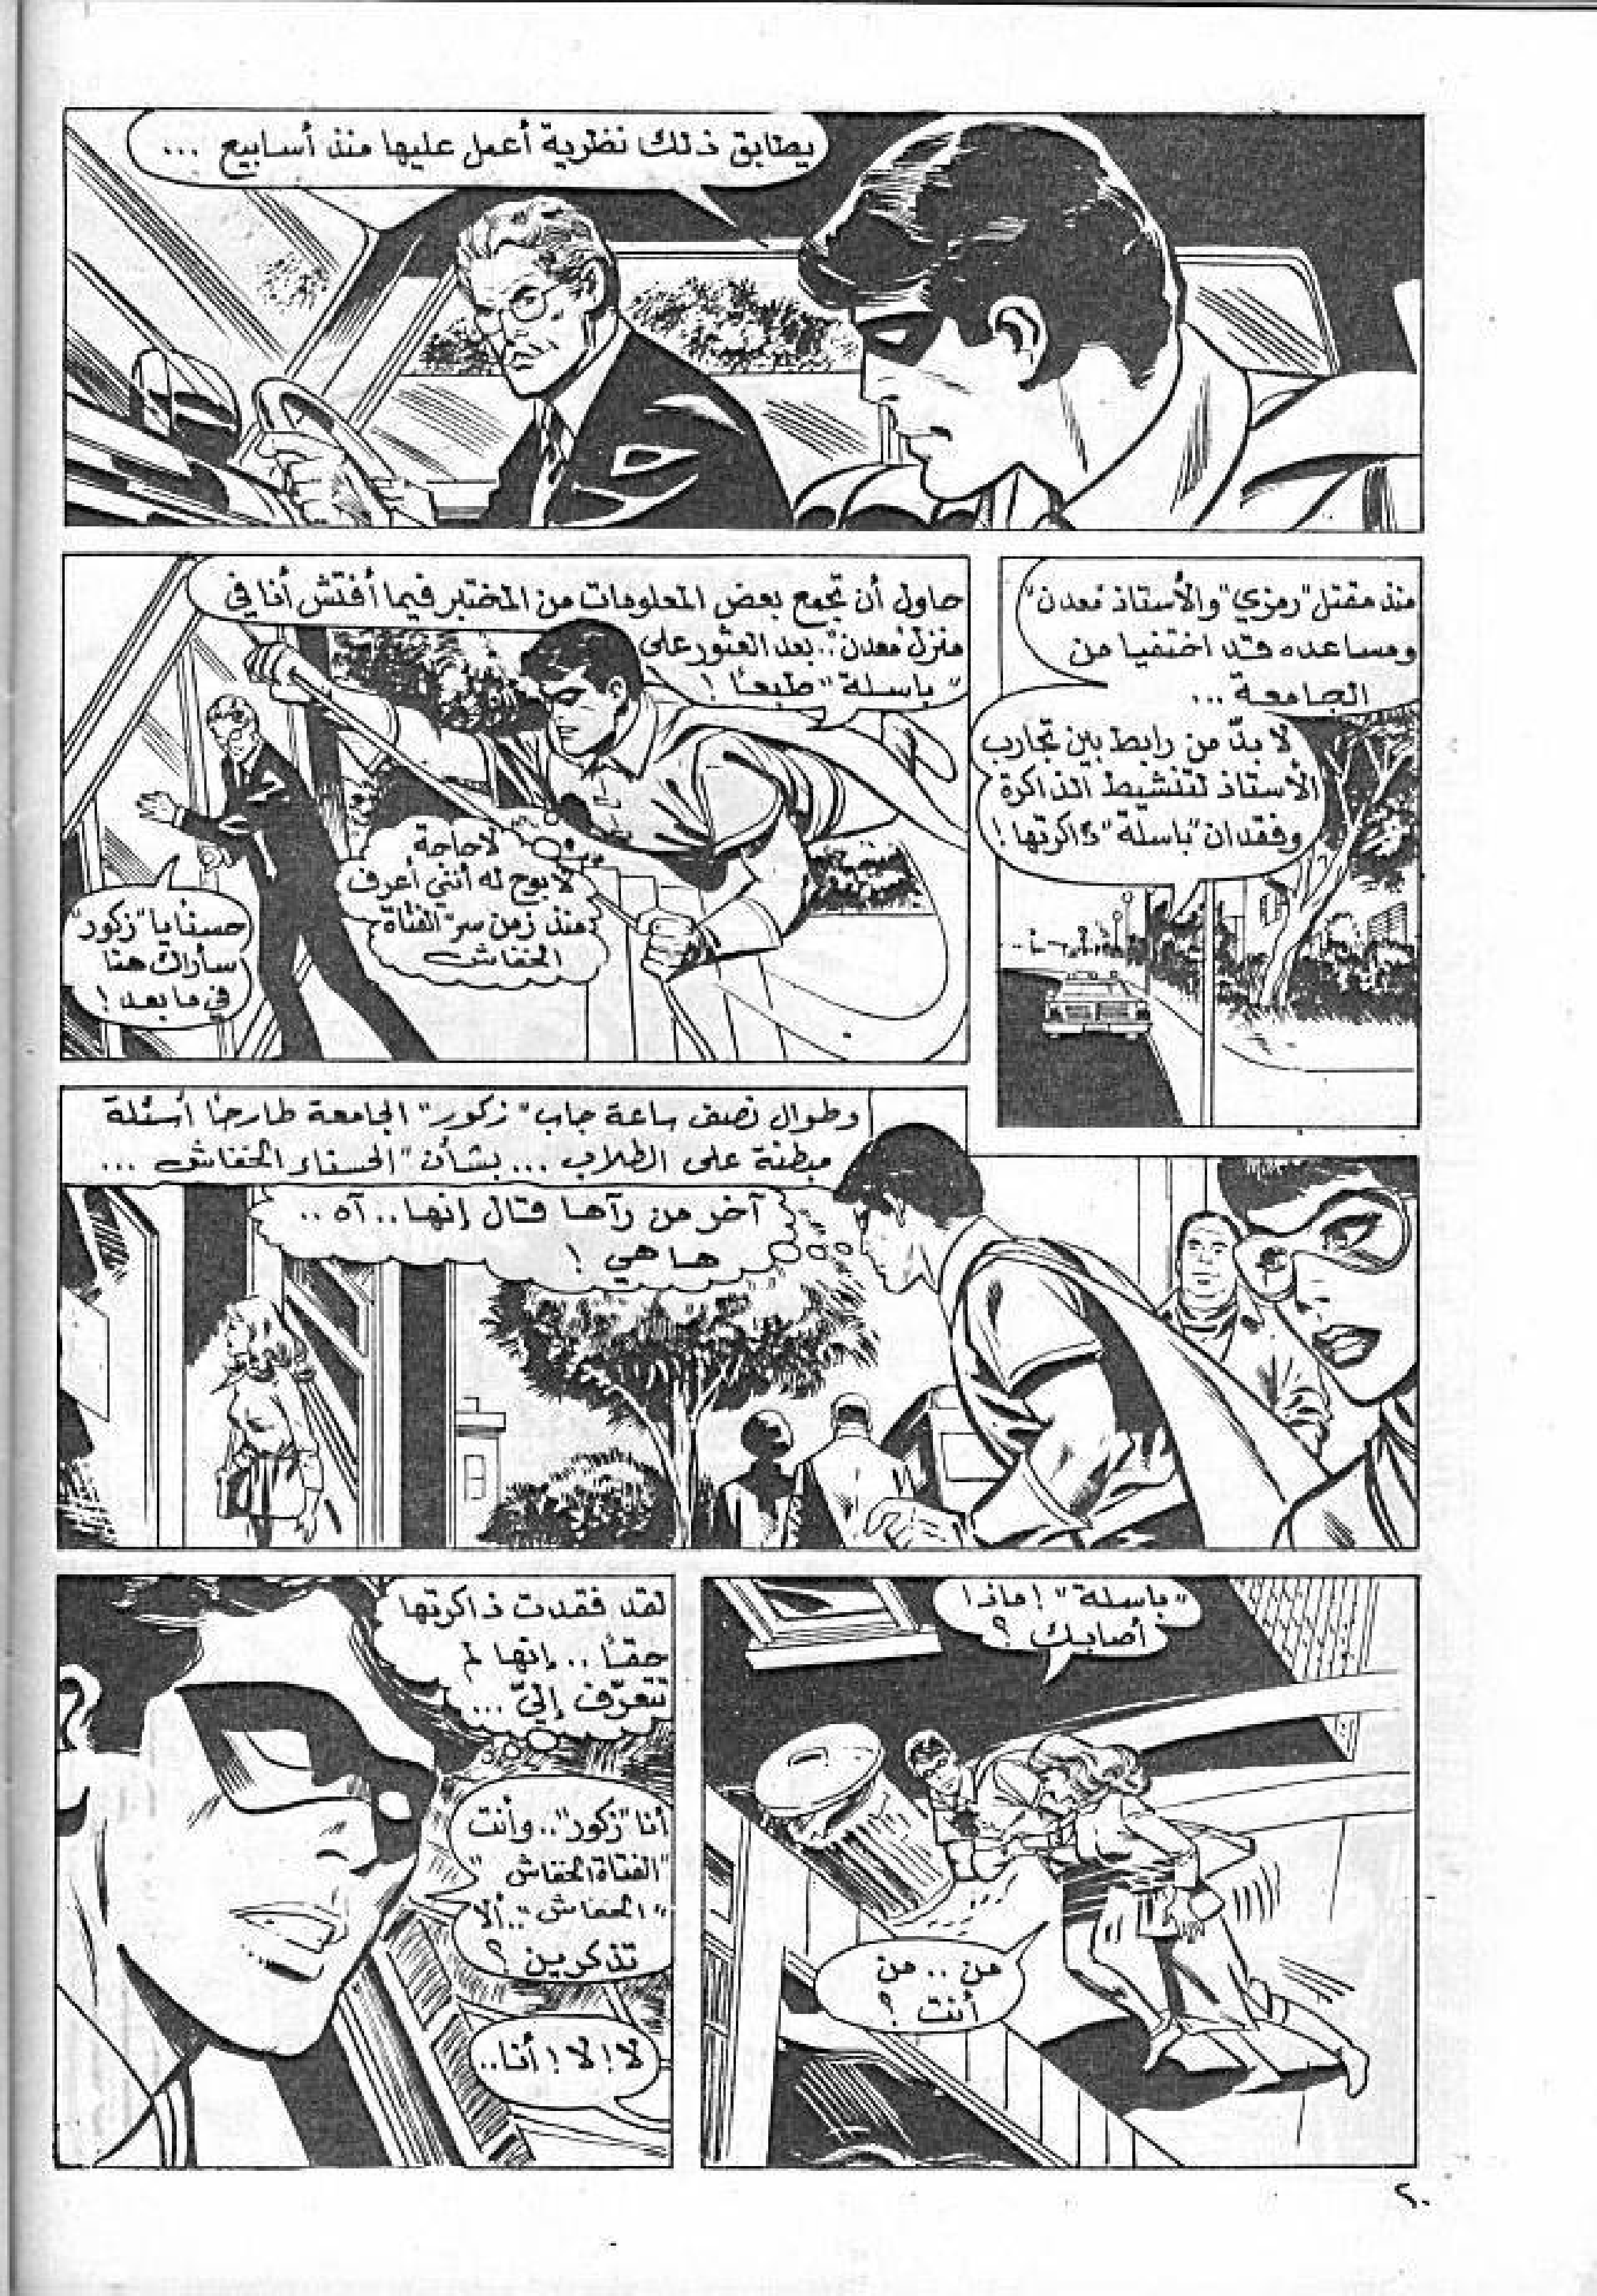 يطابق ذلك نظرية أعمل عليها منذ أسابيع ...
منذ مقتل "رمزي" والأستاذ "معدن"
ومساعده قد اختفيا من
الجامعة ...
لا بدّ من رابط بين تجارب
الأستاذ لتنشيط الذاكرة
وفقدان "باسلة" ذاكرتها !
حاول أن تجمع بعض المعلومات من المختبر فيما أفتش أنا في
منزل "معدن".. بعد العثور على
"باسلة" طبعًا !
لا حاجة
لأبوح له أنني أعرف
منذ زمن سرّ الفتاة
الخفاش
حسنًا يا "زكور"
سأراك هنا
في ما بعد !
وطوال نصف ساعة جاب "زكور" الجامعة طارحًا أسئلة
مبطنة على الطلاب ... بشأن "الحسناء الخفاش ...
آخر من رآها قال إنها .. آه ..
ها هي !
"باسلة" ! ماذا
أصابك ؟
من .. من
أنت ؟
لقد فقدت ذاكرتها
حقًا .. إنها لم
تتعرّف إليّ ...
أنا "زكور".. وأنت
"الفتاة الخفاش"
"الخفاش".. ألا
تذكرين ؟
لا ! لا ! أنا ..
٢٠